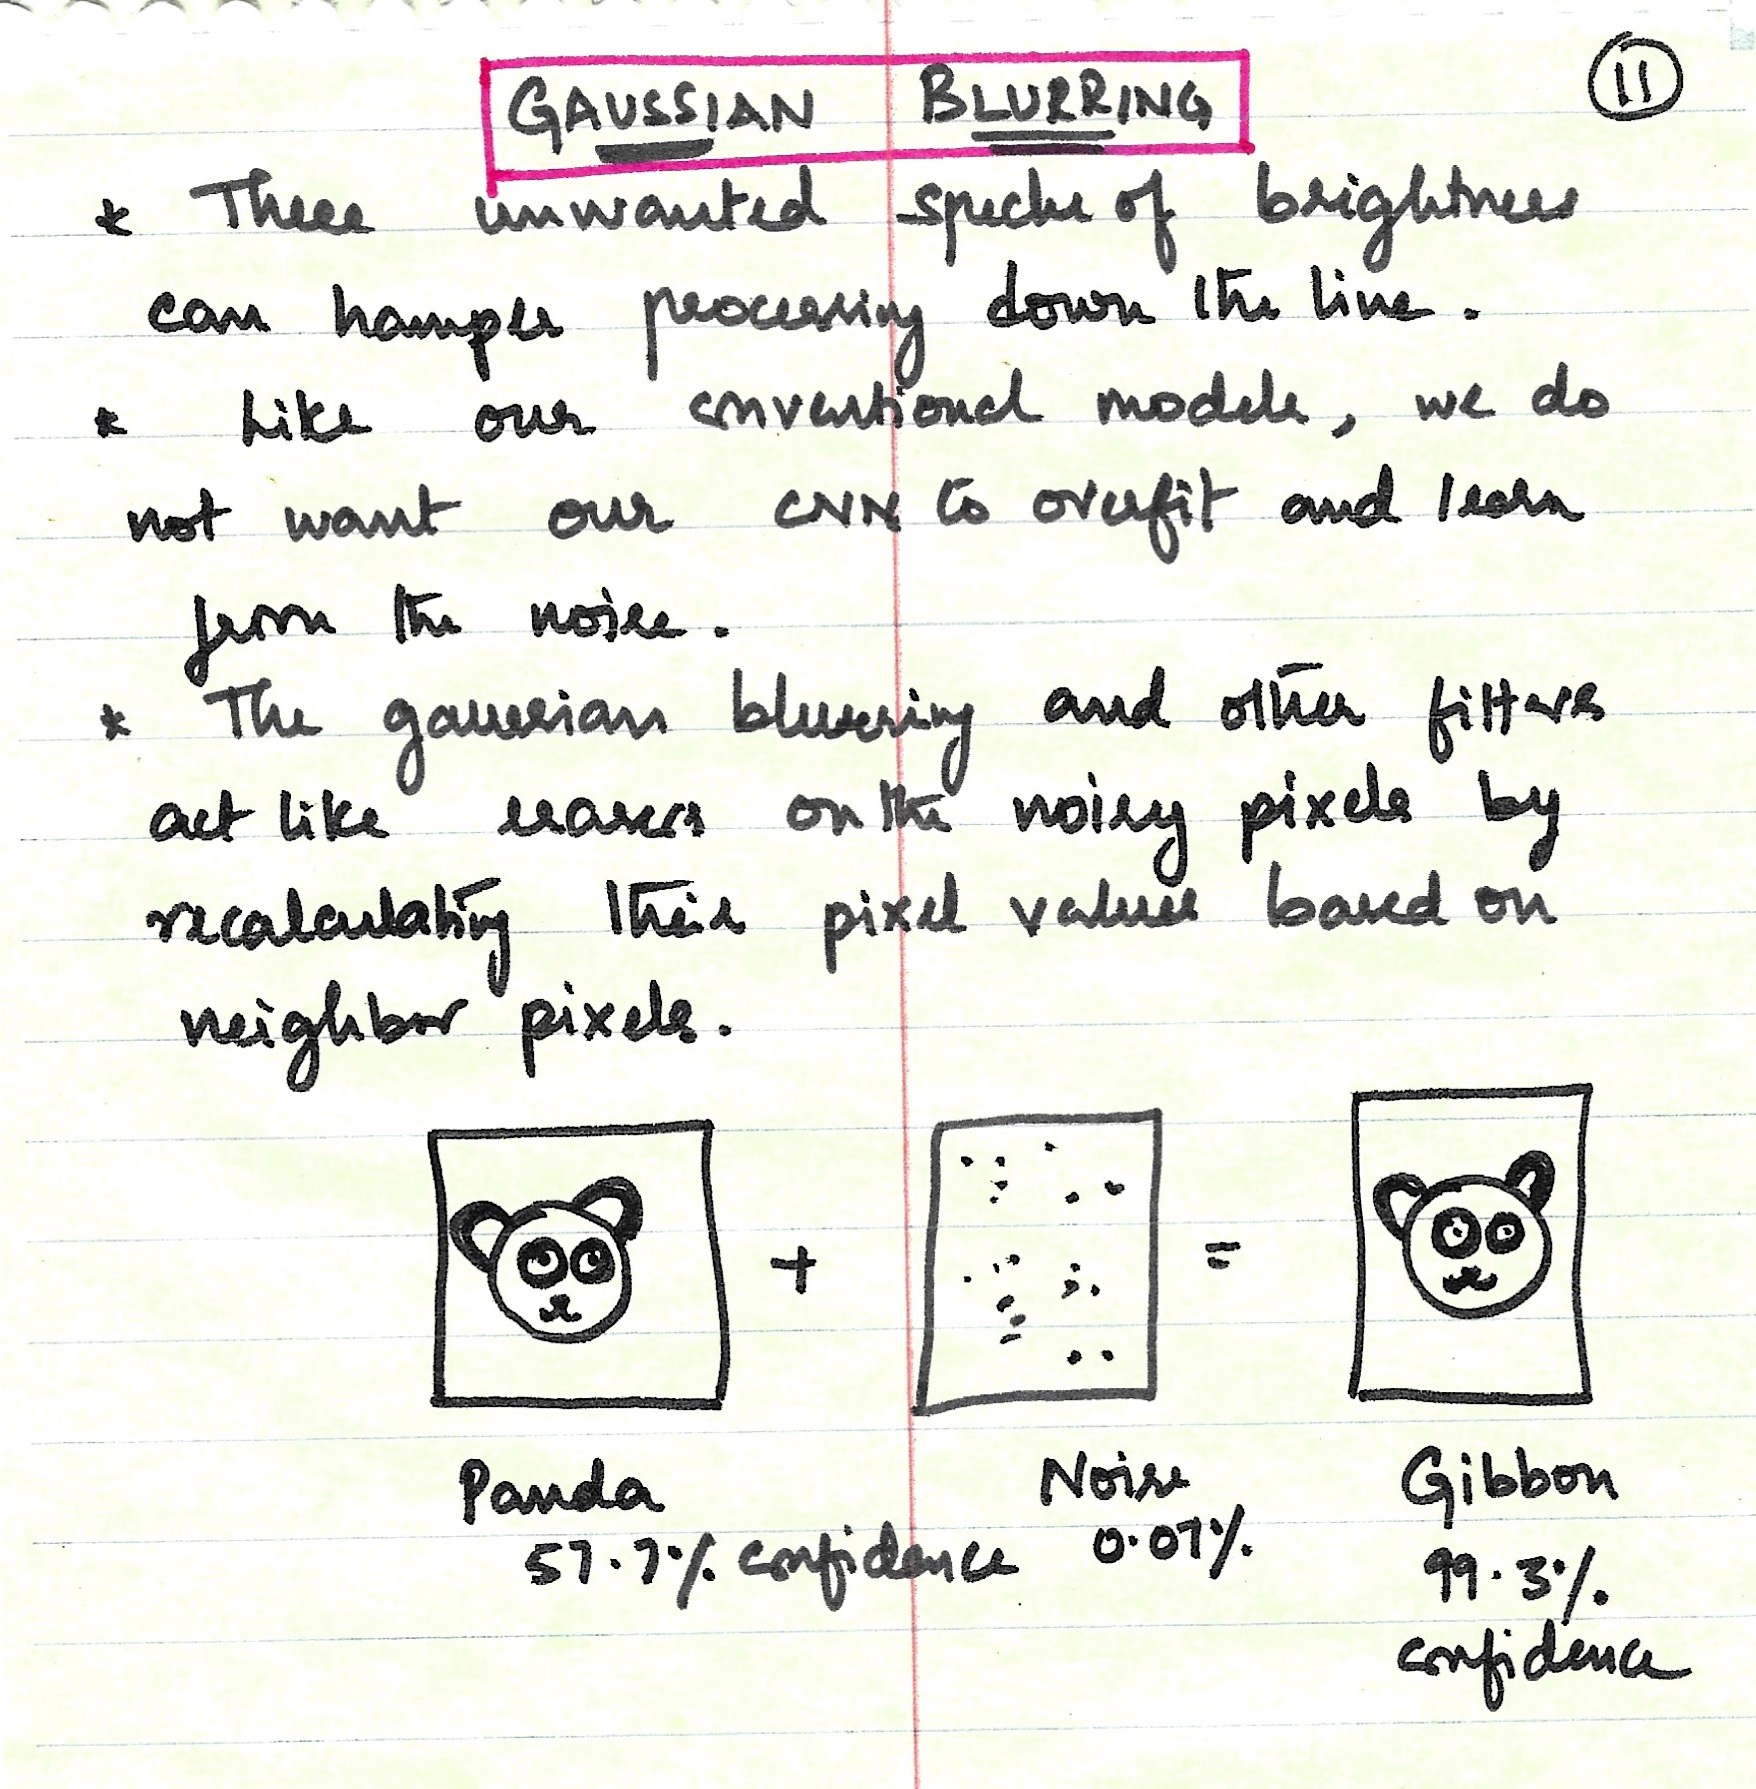 11
GAUSSIAN BLURRING
* These unwanted specks of brightness
can hamper processing down the line.
* Like our conventional models, we do
not want our CNN to overfit and learn
from the noise.
* The gaussian blurring and other filters
act like erasers on the noisy pixels by
recalculating their pixel values based on
neighbor pixels.
+ =
Panda Noise Gibbon
57.7% confidence 0.07% 99.3%
confidence